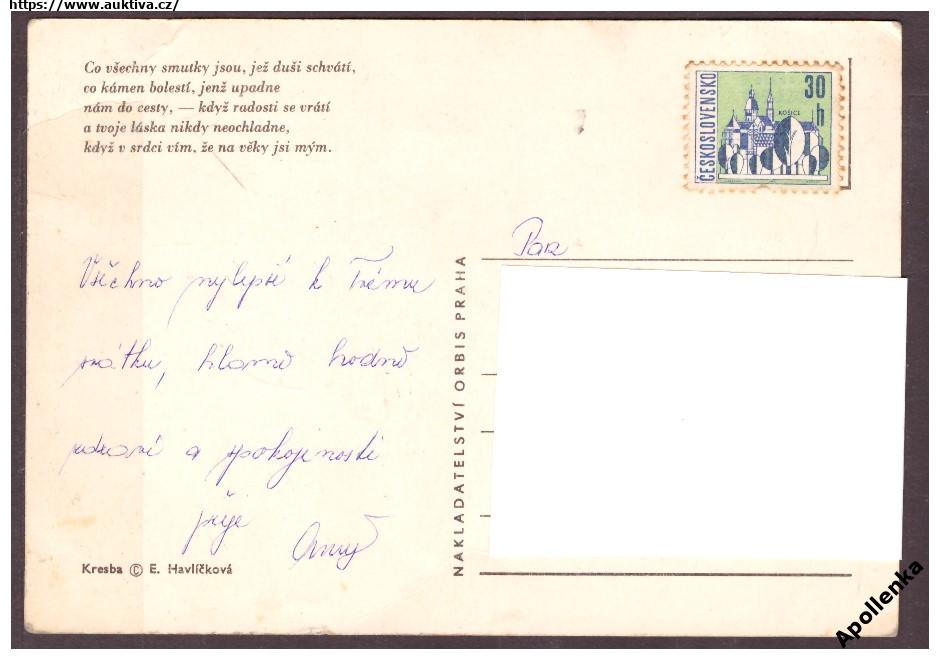 https://www.auktiva.cz/
Co všechny smutky jsou, jež duši schvátí,
co kámen bolestí, jenž upadne
nám do cesty, — když radosti se vrátí
a tvoje láska nikdy neochladne,
když v srdci vím, že na věky jsi mým.
ČESKOSLOVENSKO
30 h
KOŠICE
Všechno nejlepší k Tvému
svátku, hlavně hodně
zdraví a spokojenosti
přeje
Kresba © E. Havlíčková
NAKLADATELSTVÍ ORBIS PRAHA
Apollenka